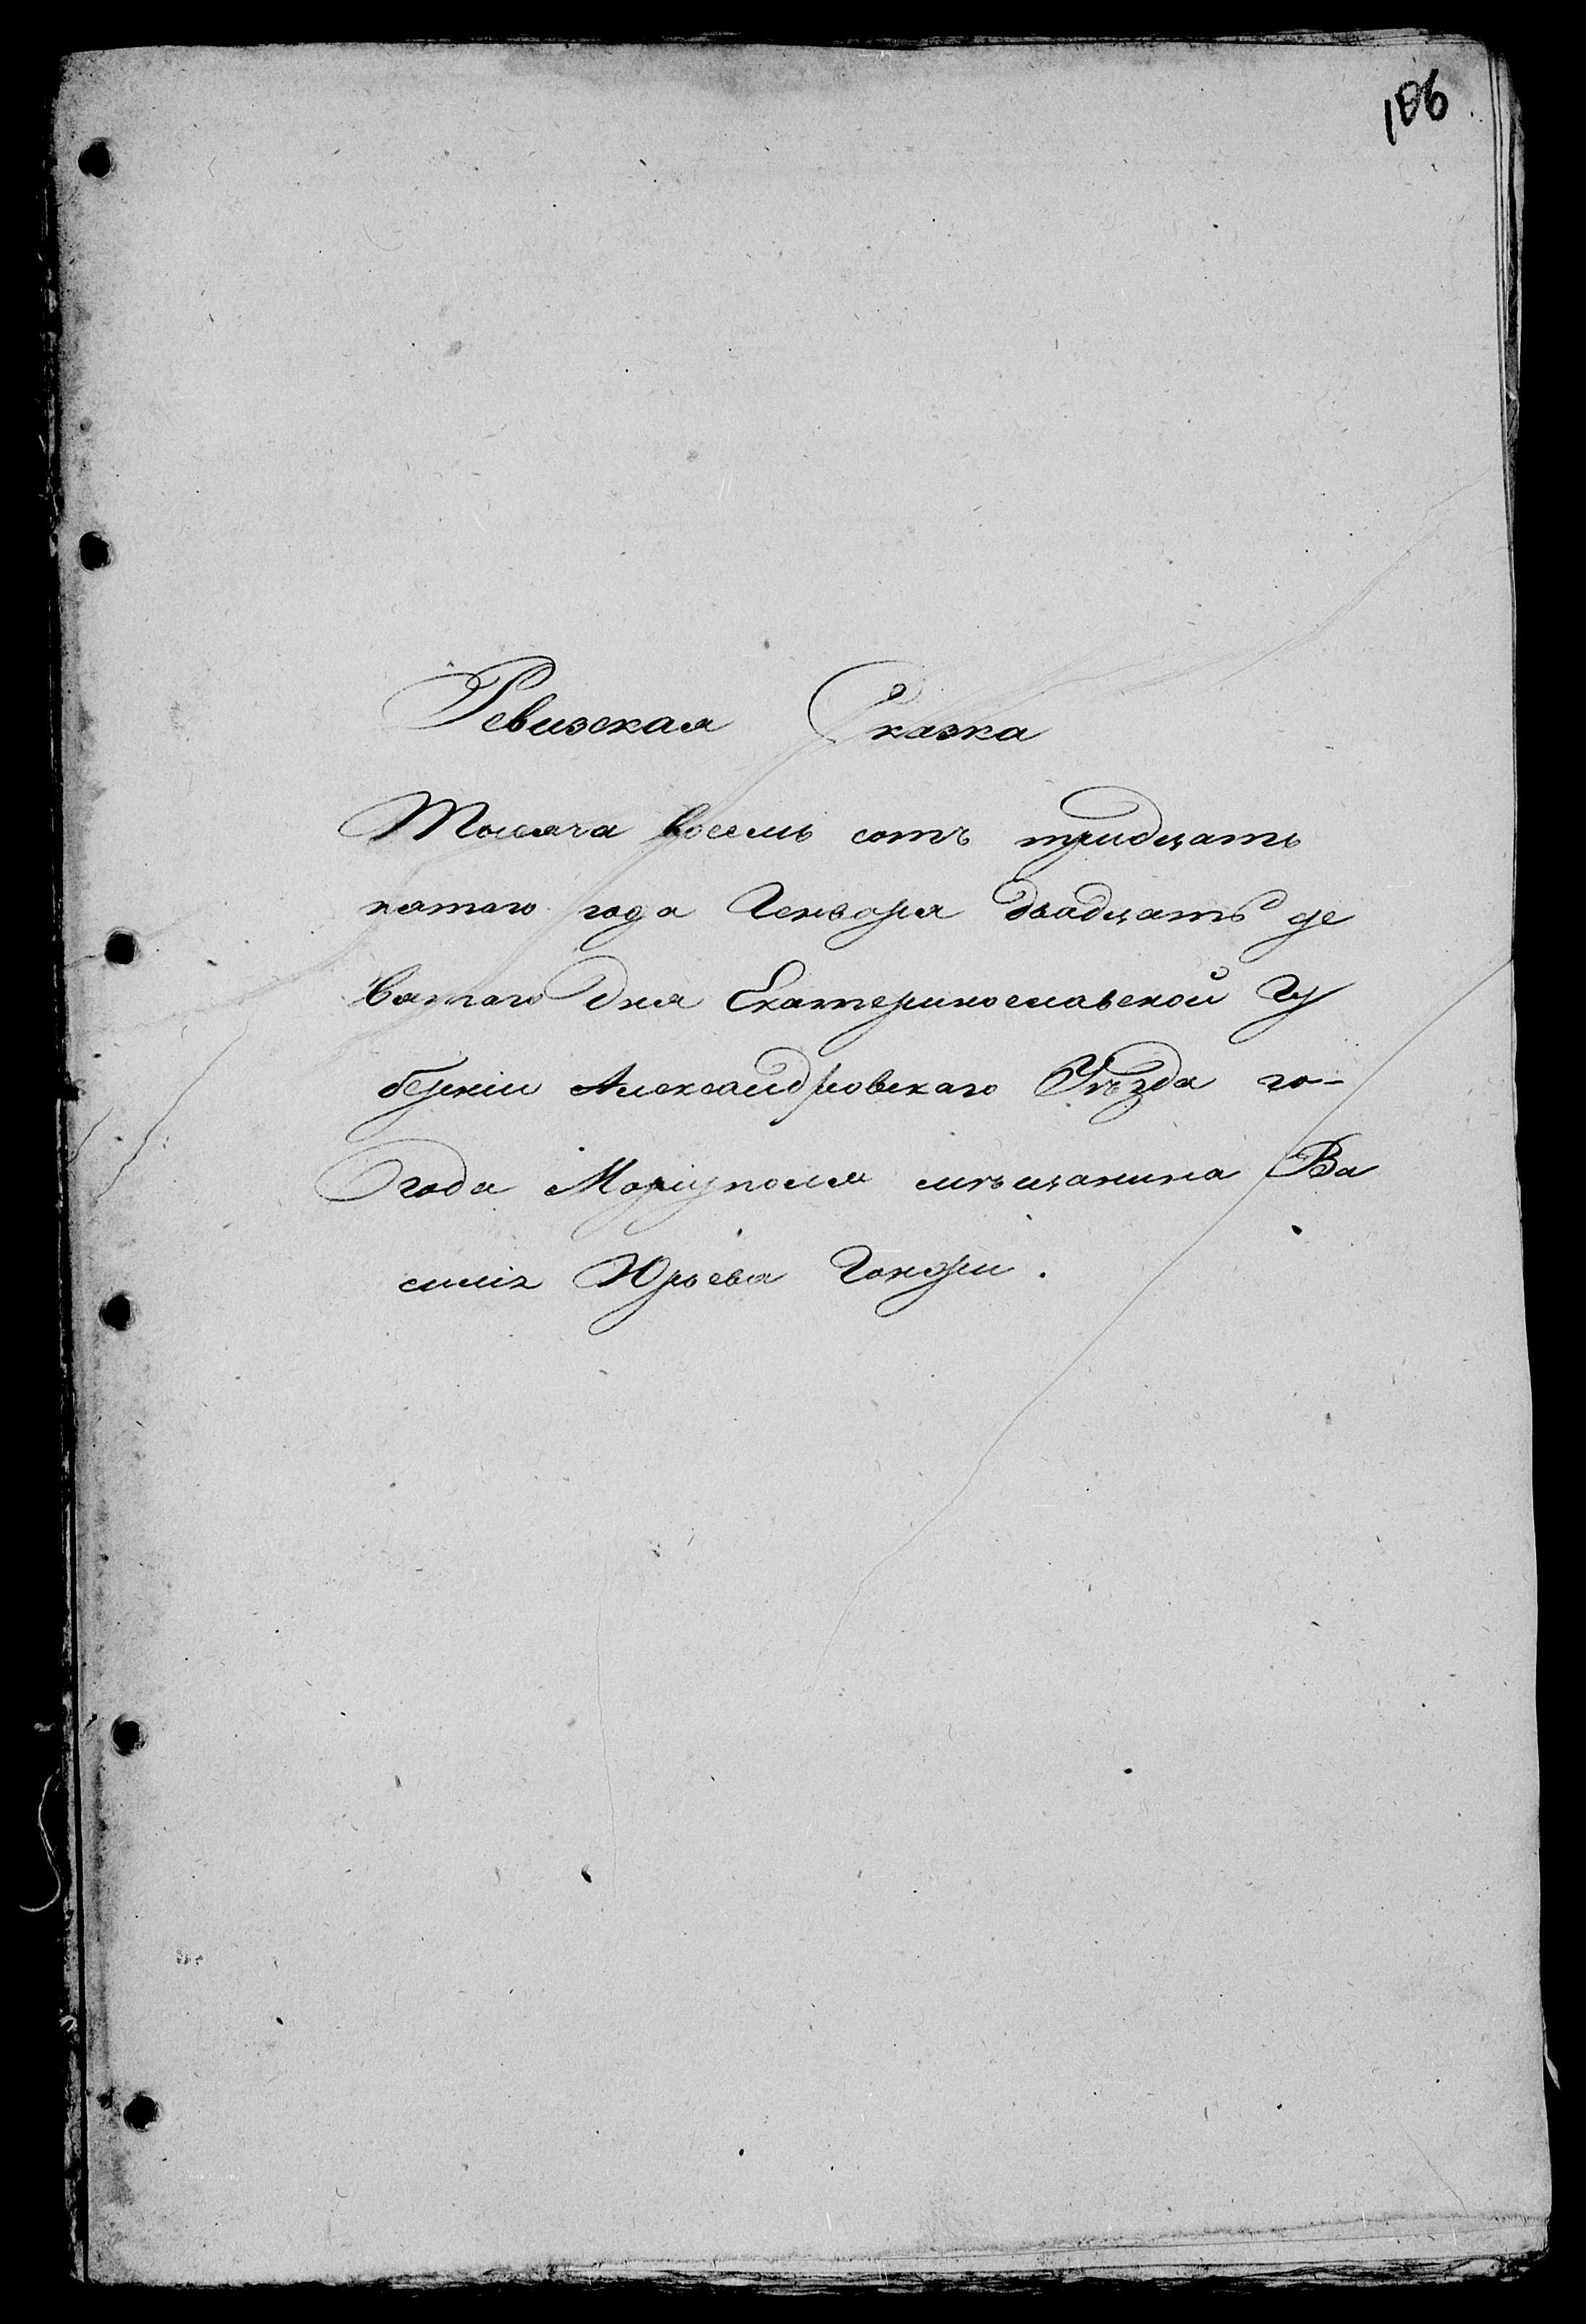 106
Ревизская Сказка
Тысяча восемь сотъ тридцать
пятаго года Генваря двадцать де
вятаго Дня Екатеринославской Гу
берніи Александровскаго Уѣзда го-
рода Маріуполя мѣщанина Ва
силія Юрьева Гонари.